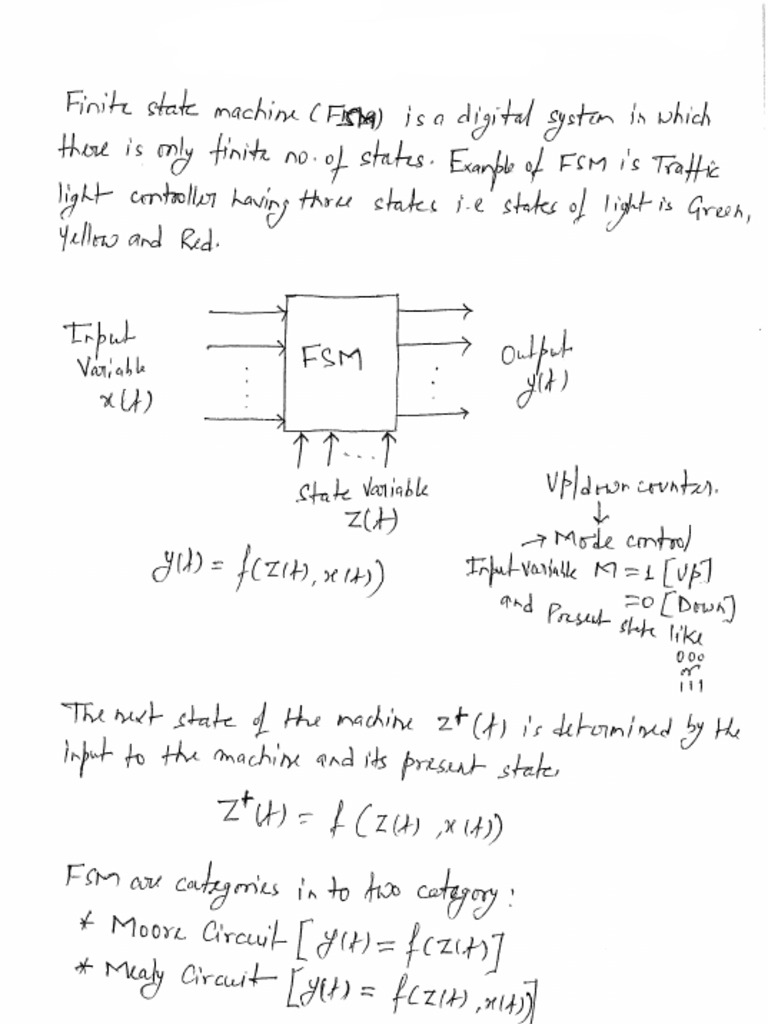 Finite state machine (FSM) is a digital system in which
there is only finite no. of states. Example of FSM is Traffic
light controller having three states i.e states of light is Green,
Yellow and Red.
Input
Variable
x(t)
FSM
Output
y(t)
State Variable
Z(t)
y(t) = f(Z(t), x(t))
Up/down counter.
↓
→ Mode control
Input variable M = 1 [Up]
=0 [Down]
and Present state like
000
or
111
The next state of the machine z⁺(t) is determined by the
input to the machine and its present state.
Z⁺(t) = f (Z(t), x(t))
FSM are categories in to two category:
* Moore Circuit [y(t) = f(Z(t)]
* Mealy Circuit [y(t) = f(Z(t), x(t))]